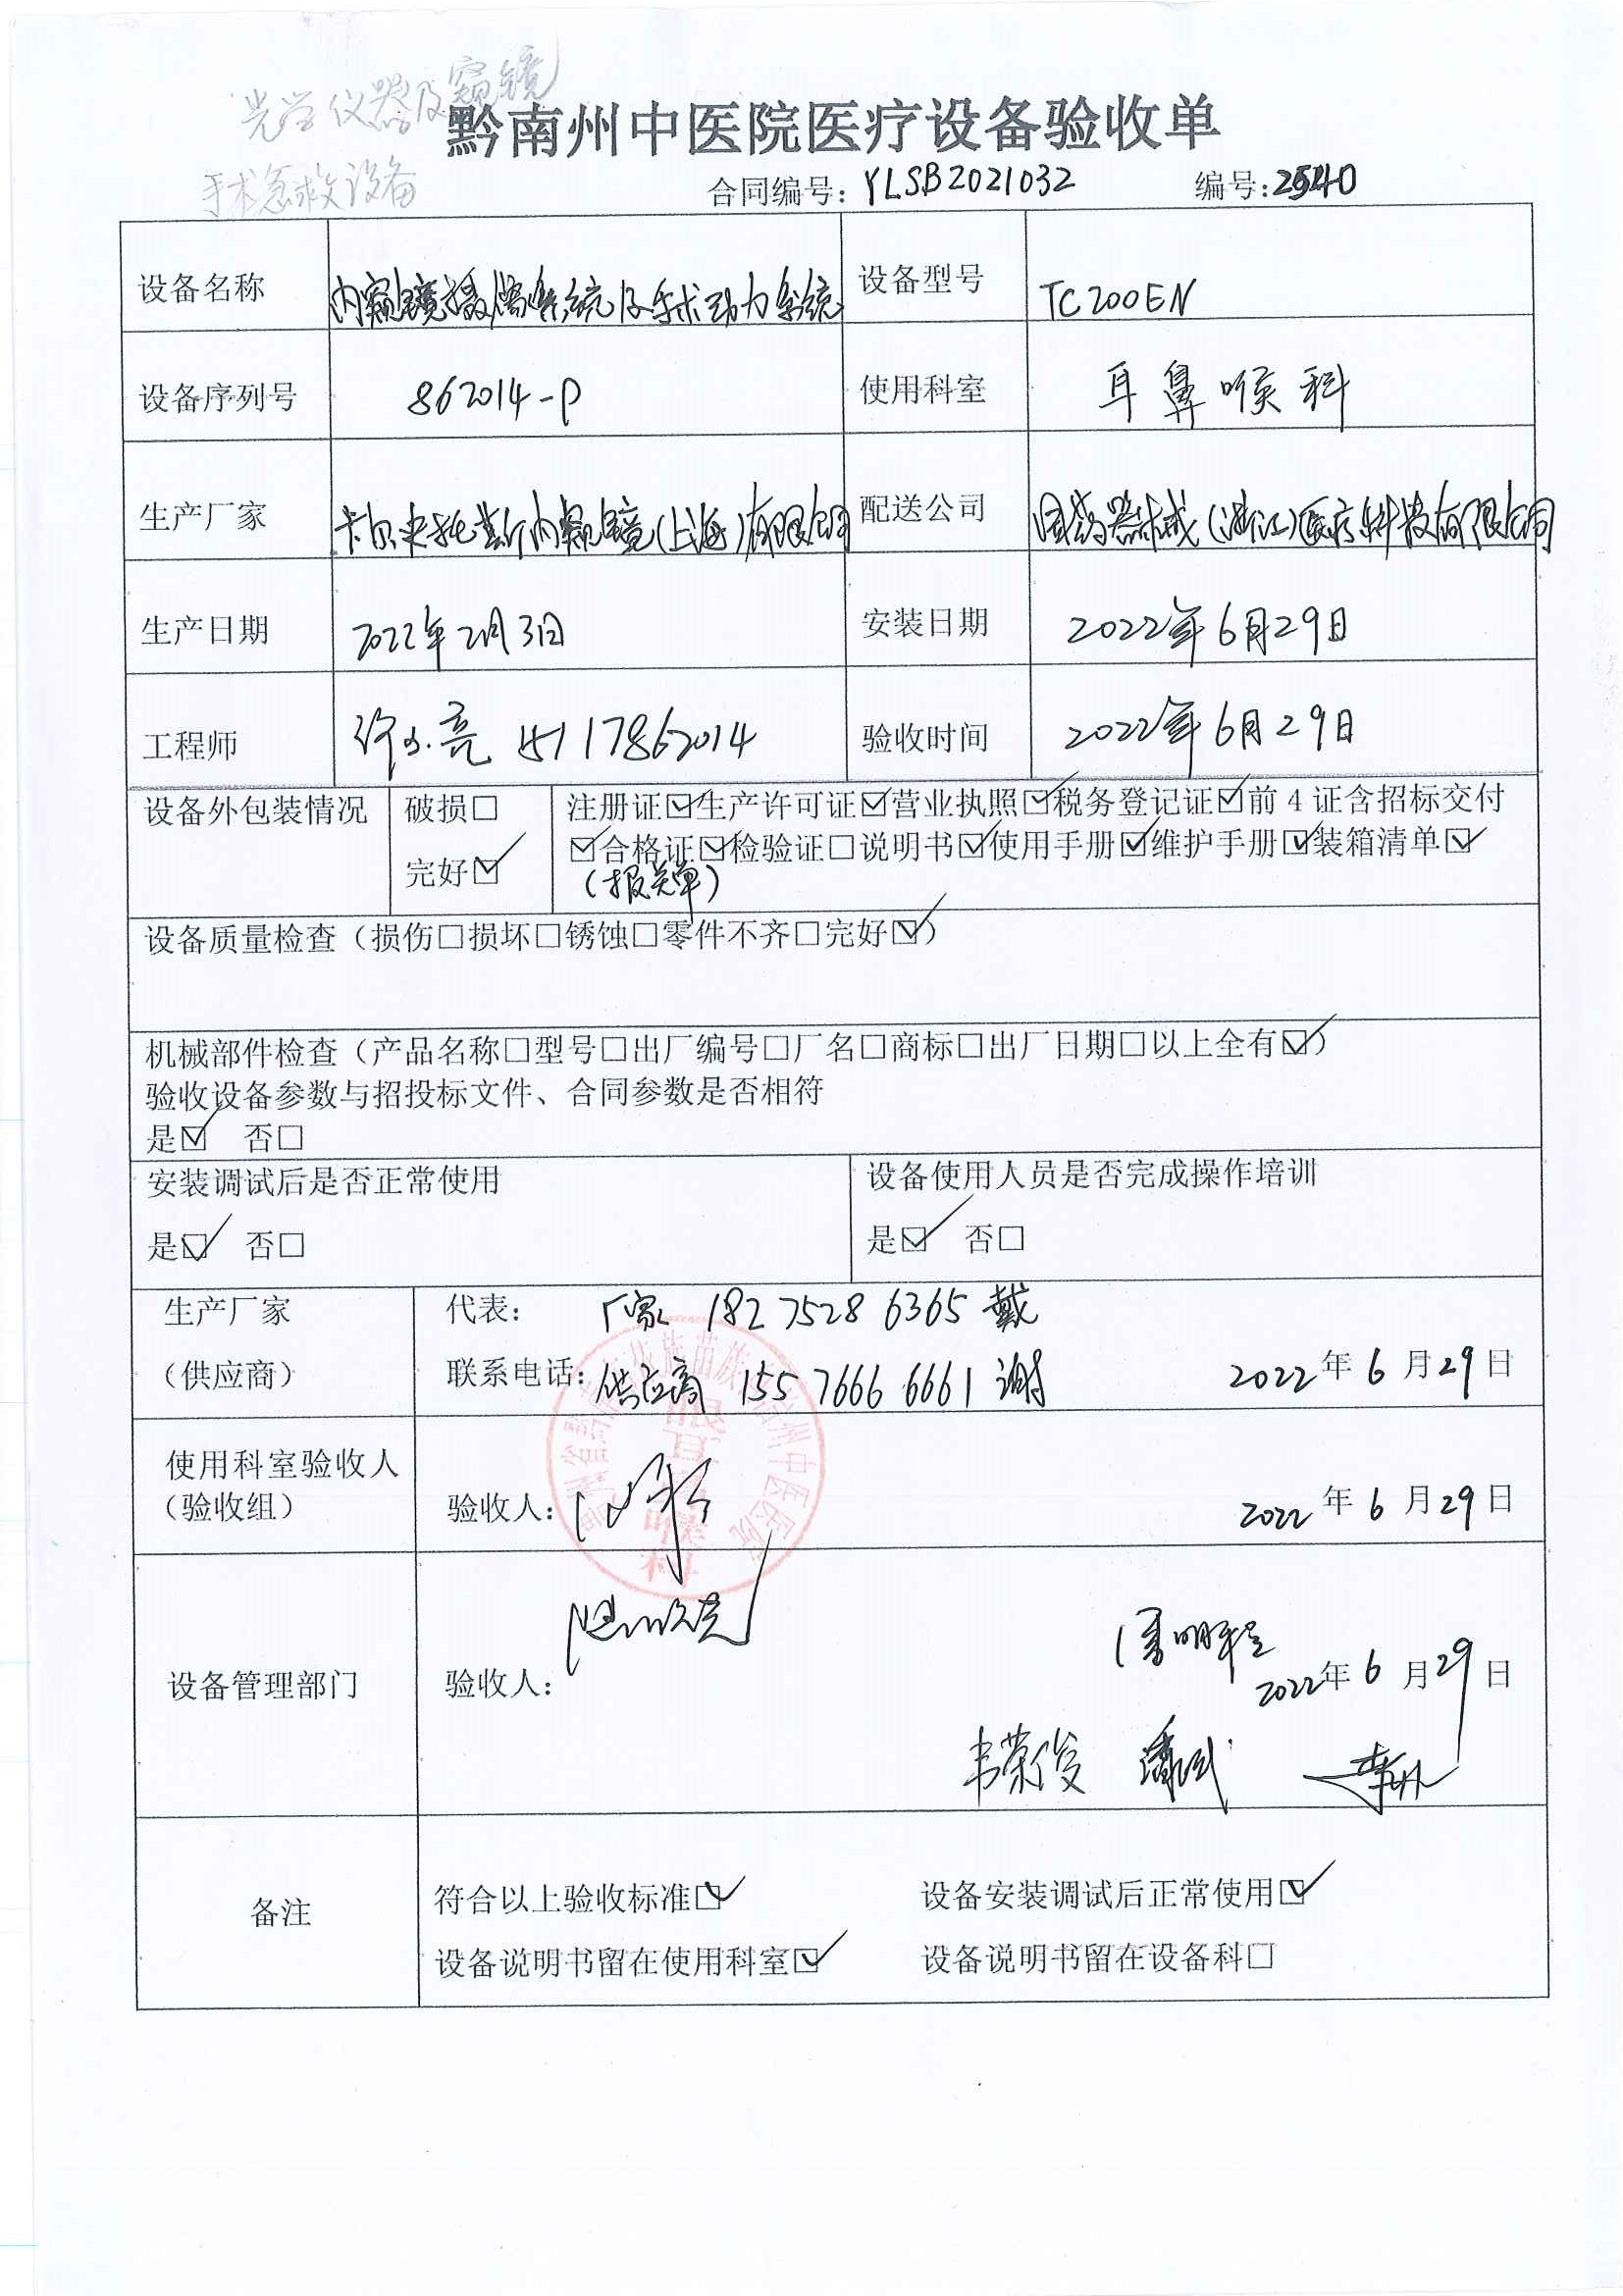 光学仪器及窥镜
手术急救设备
黔南州中医院医疗设备验收单
合同编号：YLSB2021032 编号：2540
设备名称 内窥镜摄像系统及手术动力系统 设备型号 TC200EN
设备序列号 862014-P 使用科室 耳鼻喉科
生产厂家 卡尔史托斯内窥镜（上海）有限公司 配送公司 国药器械（湛江）医疗科技有限公司
生产日期 2022年2月3日 安装日期 2022年6月29日
工程师 徐小亮 15117862014 验收时间 2022年6月29日
设备外包装情况 破损□ 注册证☑生产许可证☑营业执照☑税务登记证☑前4证含招标交付
完好☑ ☑合格证☑检验证□说明书☑使用手册☑维护手册☑装箱清单☑
（报关单）
设备质量检查（损伤□损坏□锈蚀□零件不齐□完好☑）
机械部件检查（产品名称□型号□出厂编号□厂名□商标□出厂日期□以上全有☑）
验收设备参数与招投标文件、合同参数是否相符
是☑ 否□
安装调试后是否正常使用 设备使用人员是否完成操作培训
是☑ 否□ 是☑ 否□
生产厂家 代表： 厂家 182 7528 6365 戴
（供应商） 联系电话： 供应商 155 7666 6661 谢 2022年6月29日
使用科室验收人
（验收组） 验收人： 2022年6月29日
设备管理部门 验收人： 2022年6月29日
韦荣俊
备注 符合以上验收标准☑ 设备安装调试后正常使用☑
设备说明书留在使用科室☑ 设备说明书留在设备科□